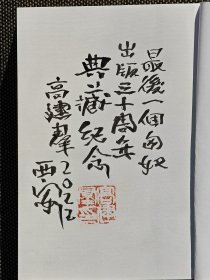 最後一個匈奴
出版三十周年
典藏纪念
高建群2022
西安